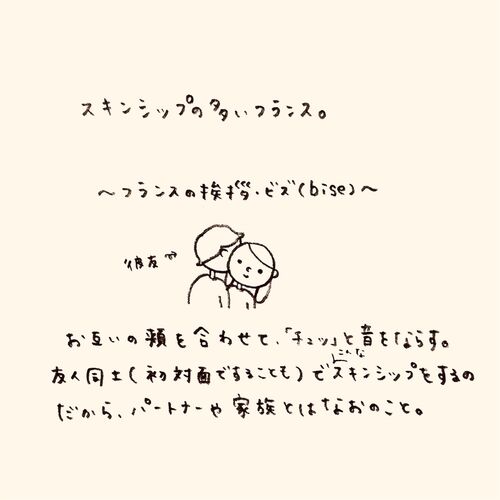 スキンシップの多いフランス。
〜フランスの挨拶・ビズ(bise)〜
お互いの頬を合わせて、「チュッ」と音をならす。
こんな
友人同士(初対面ですることも)でスキンシップをするの
だから、パートナーや家族とはなおのこと。